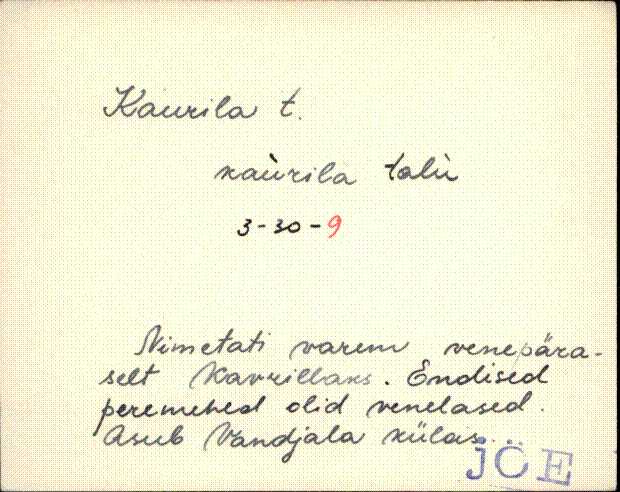 Kaurila t.
kaùrila talu
3-30-9
Nimetati varem venepära-
selt Kavrillaks. Endised
peremehed olid venelased.
Asub Vandjala külas.
JÖE